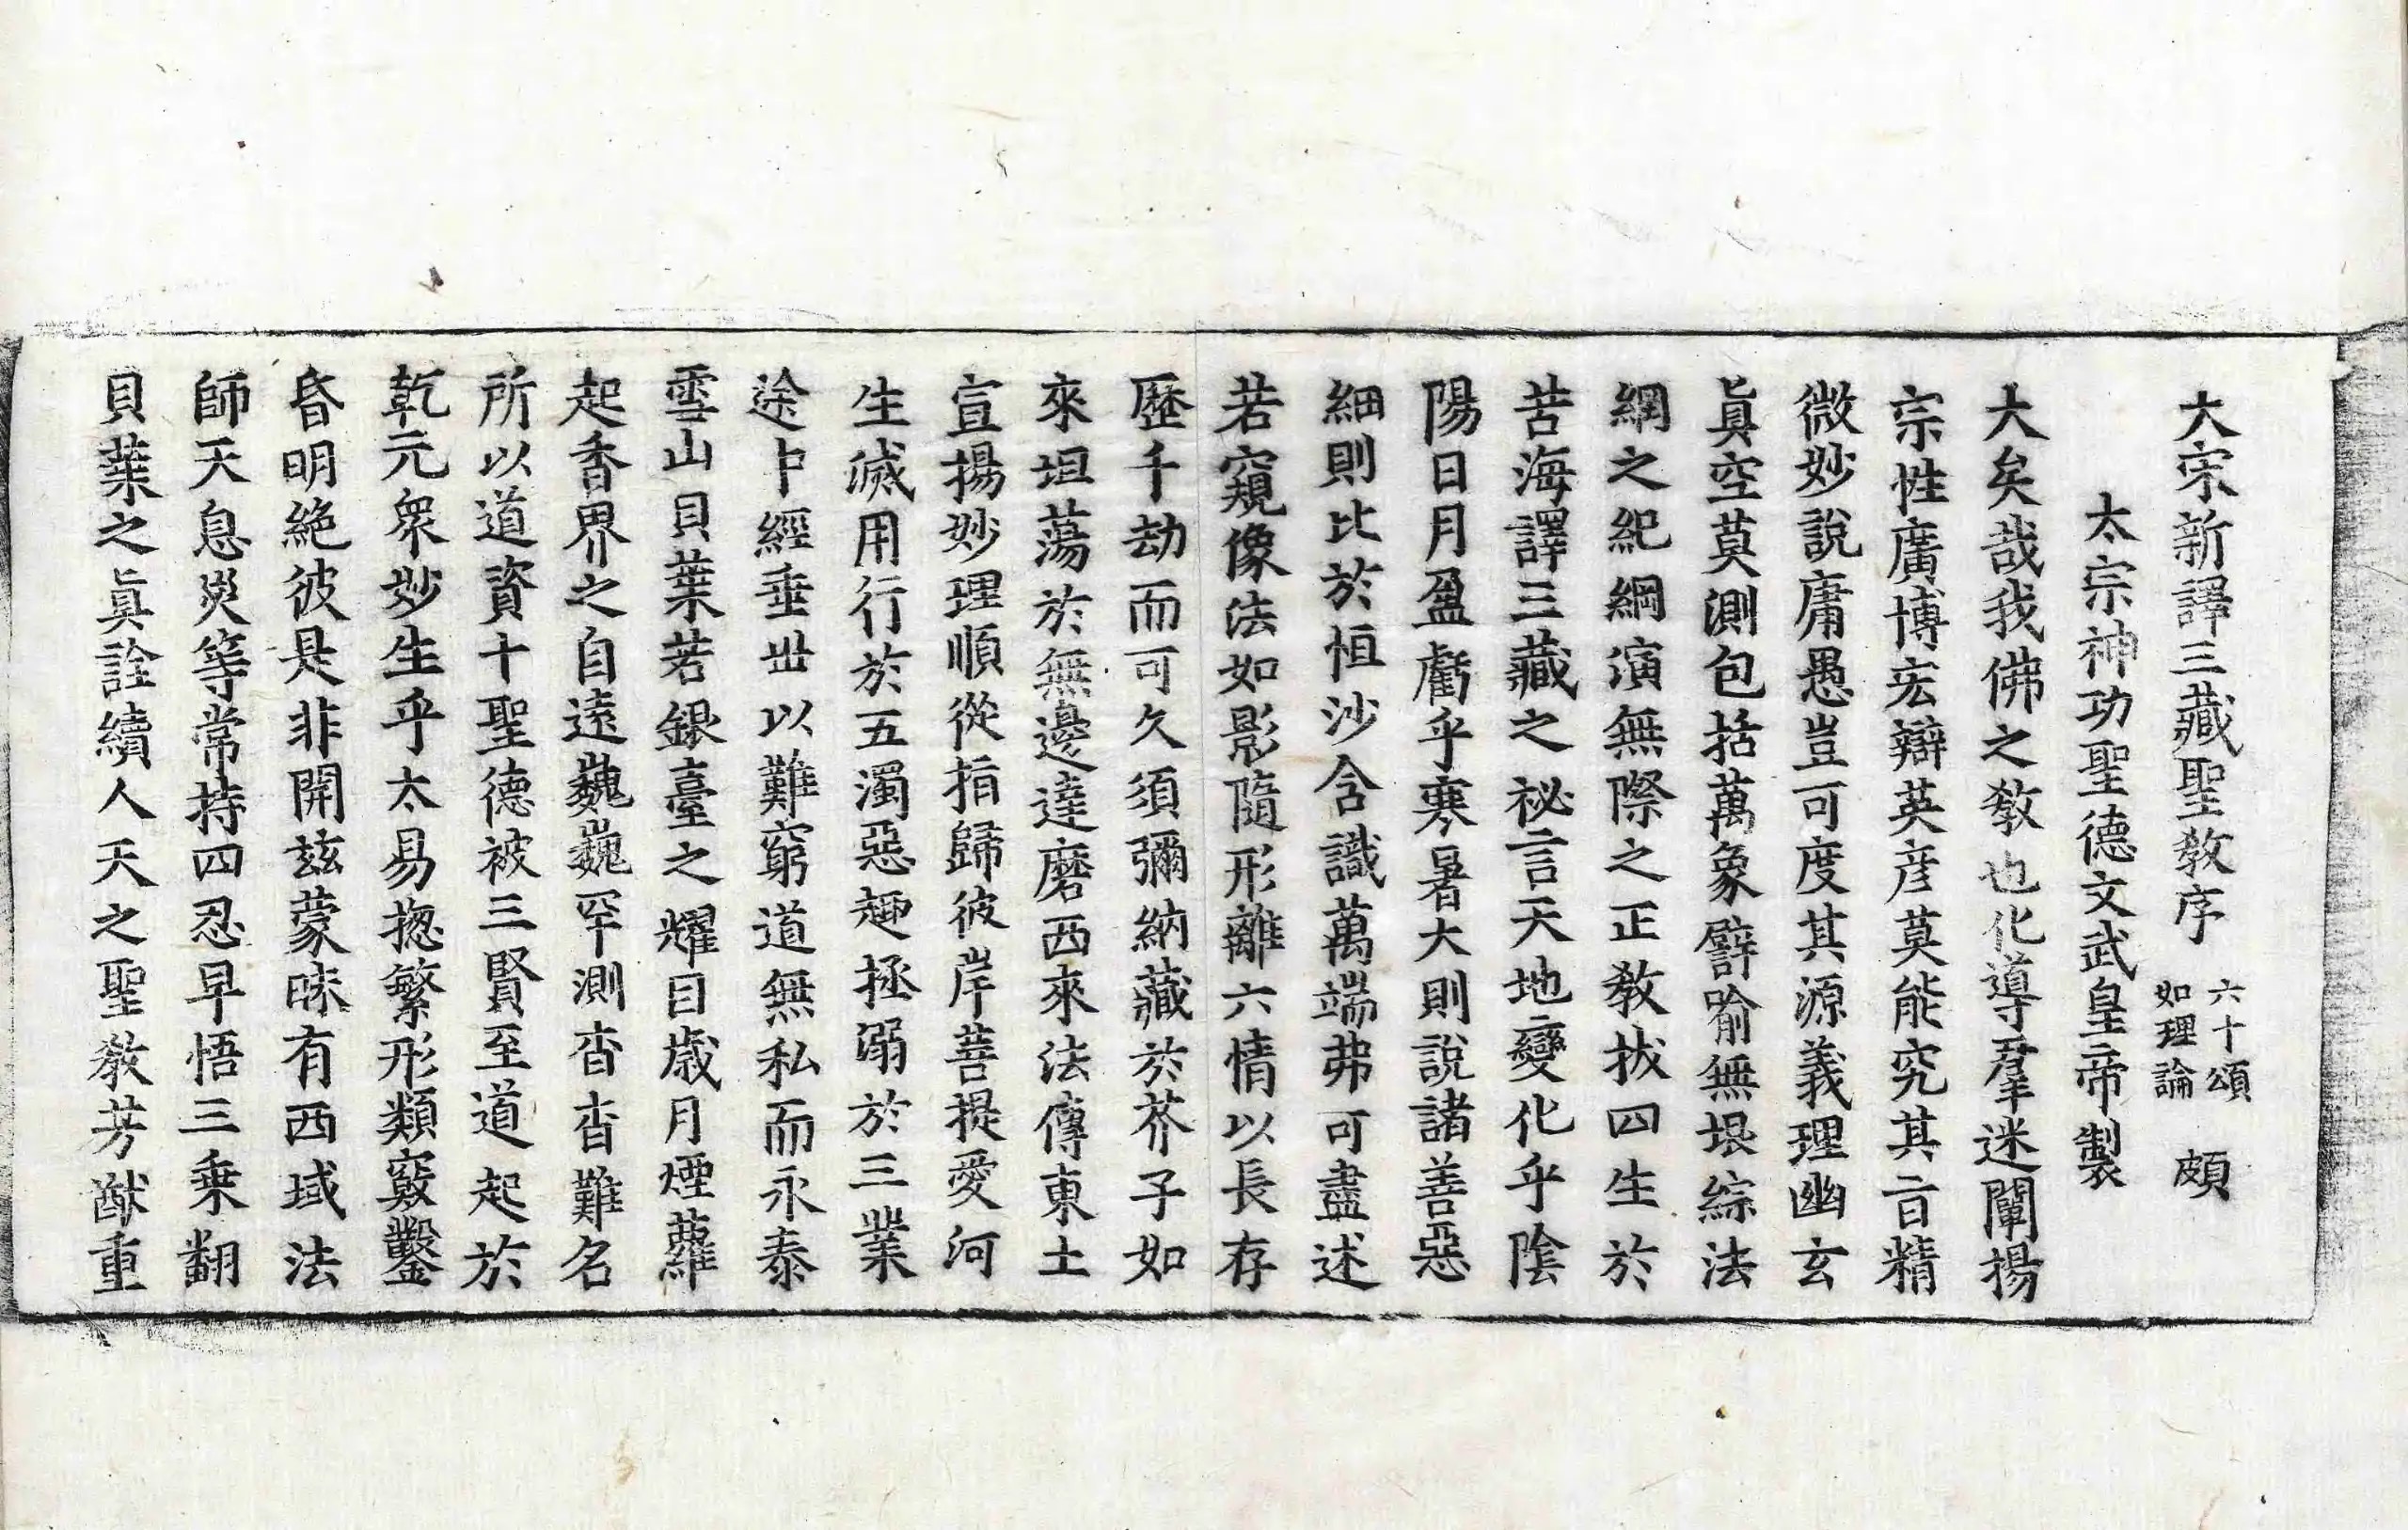 大宋新譯三藏聖敎序 六十頌如理論 頗
太宗神功聖德文武皇帝製
大矣哉我佛之敎也化導羣迷闡揚
宗性廣博宏辯英彦莫能究其旨精
微妙說庸愚豈可度其源義理幽玄
眞空莫測包括萬象譬喻無垠綜法
網之紀綱演無際之正敎拔四生於
苦海譯三藏之祕言天地變化乎陰
陽日月盈虧乎寒暑大則說諸善惡
細則比於恒沙含識萬端弗可盡述
若窺像法如影隨形離六情以長存
歷千劫而可久須彌納藏於芥子如
來坦蕩於無邊達磨西來法傳東土
宣揚妙理順從指歸彼岸菩提愛河
生滅用行於五濁惡趣拯溺於三業
途中經垂世以難窮道無私而永泰
雪山貝葉若銀臺之耀目歲月煙蘿
起香界之自遠巍巍罕測杳杳難名
所以道資十聖德被三賢至道起於
乾元衆妙生乎太易揔繁形類竅鑿
昏明絶彼是非開玆蒙昧有西域法
師天息災等常持四忍早悟三乘翻
貝葉之眞詮續人天之聖敎芳猷重